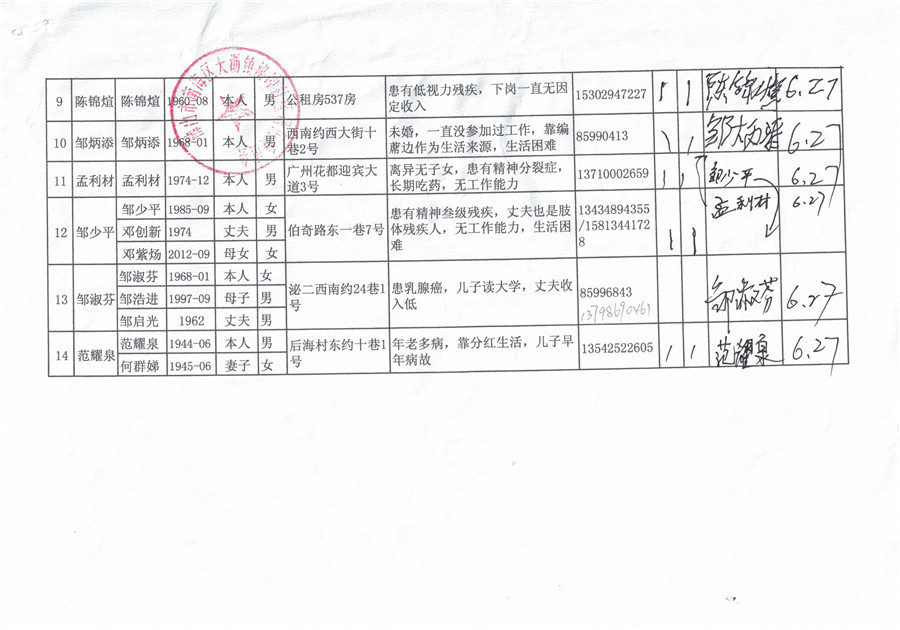 9 陈锦煊 陈锦煊 1960-08 本人 男 公租房537房 患有低视力残疾，下岗一直无因定收入 15302947227 陈锦煊 6.27
10 邹炳添 邹炳添 1968-01 本人 男 西南约西大街十巷2号 未婚，一直没参加过工作，靠编蓆边作为生活来源，生活困难 85990413 6.27
11 孟利材 孟利材 1974-12 本人 男 广州花都迎宾大道3号 离异无子女，患有精神分裂症，长期吃药，无工作能力 13710002659 邹少平 6.27
12 邹少平 邹少平 1985-09 本人 女 伯奇路东一巷7号 患有精神叁级残疾，丈夫也是肢体残疾人，无工作能力，生活困难 13434894355/15813441728 孟利材 6.27
邓创新 1974 丈夫 男
邓紫炀 2012-09 母女 女
13 邹淑芬 邹淑芬 1968-01 本人 女 泌二西南约24巷1号 患乳腺癌，儿子读大学，丈夫收入低 85996843 13798690461 邹淑芬 6.27
邹浩进 1997-09 母子 男
邹启光 1962 丈夫 男
14 范耀泉 范耀泉 1944-06 本人 男 后海村东约十巷1号 年老多病，靠分红生活，儿子早年病故 13542522605 范耀泉 6.27
何群娣 1945-06 妻子 女